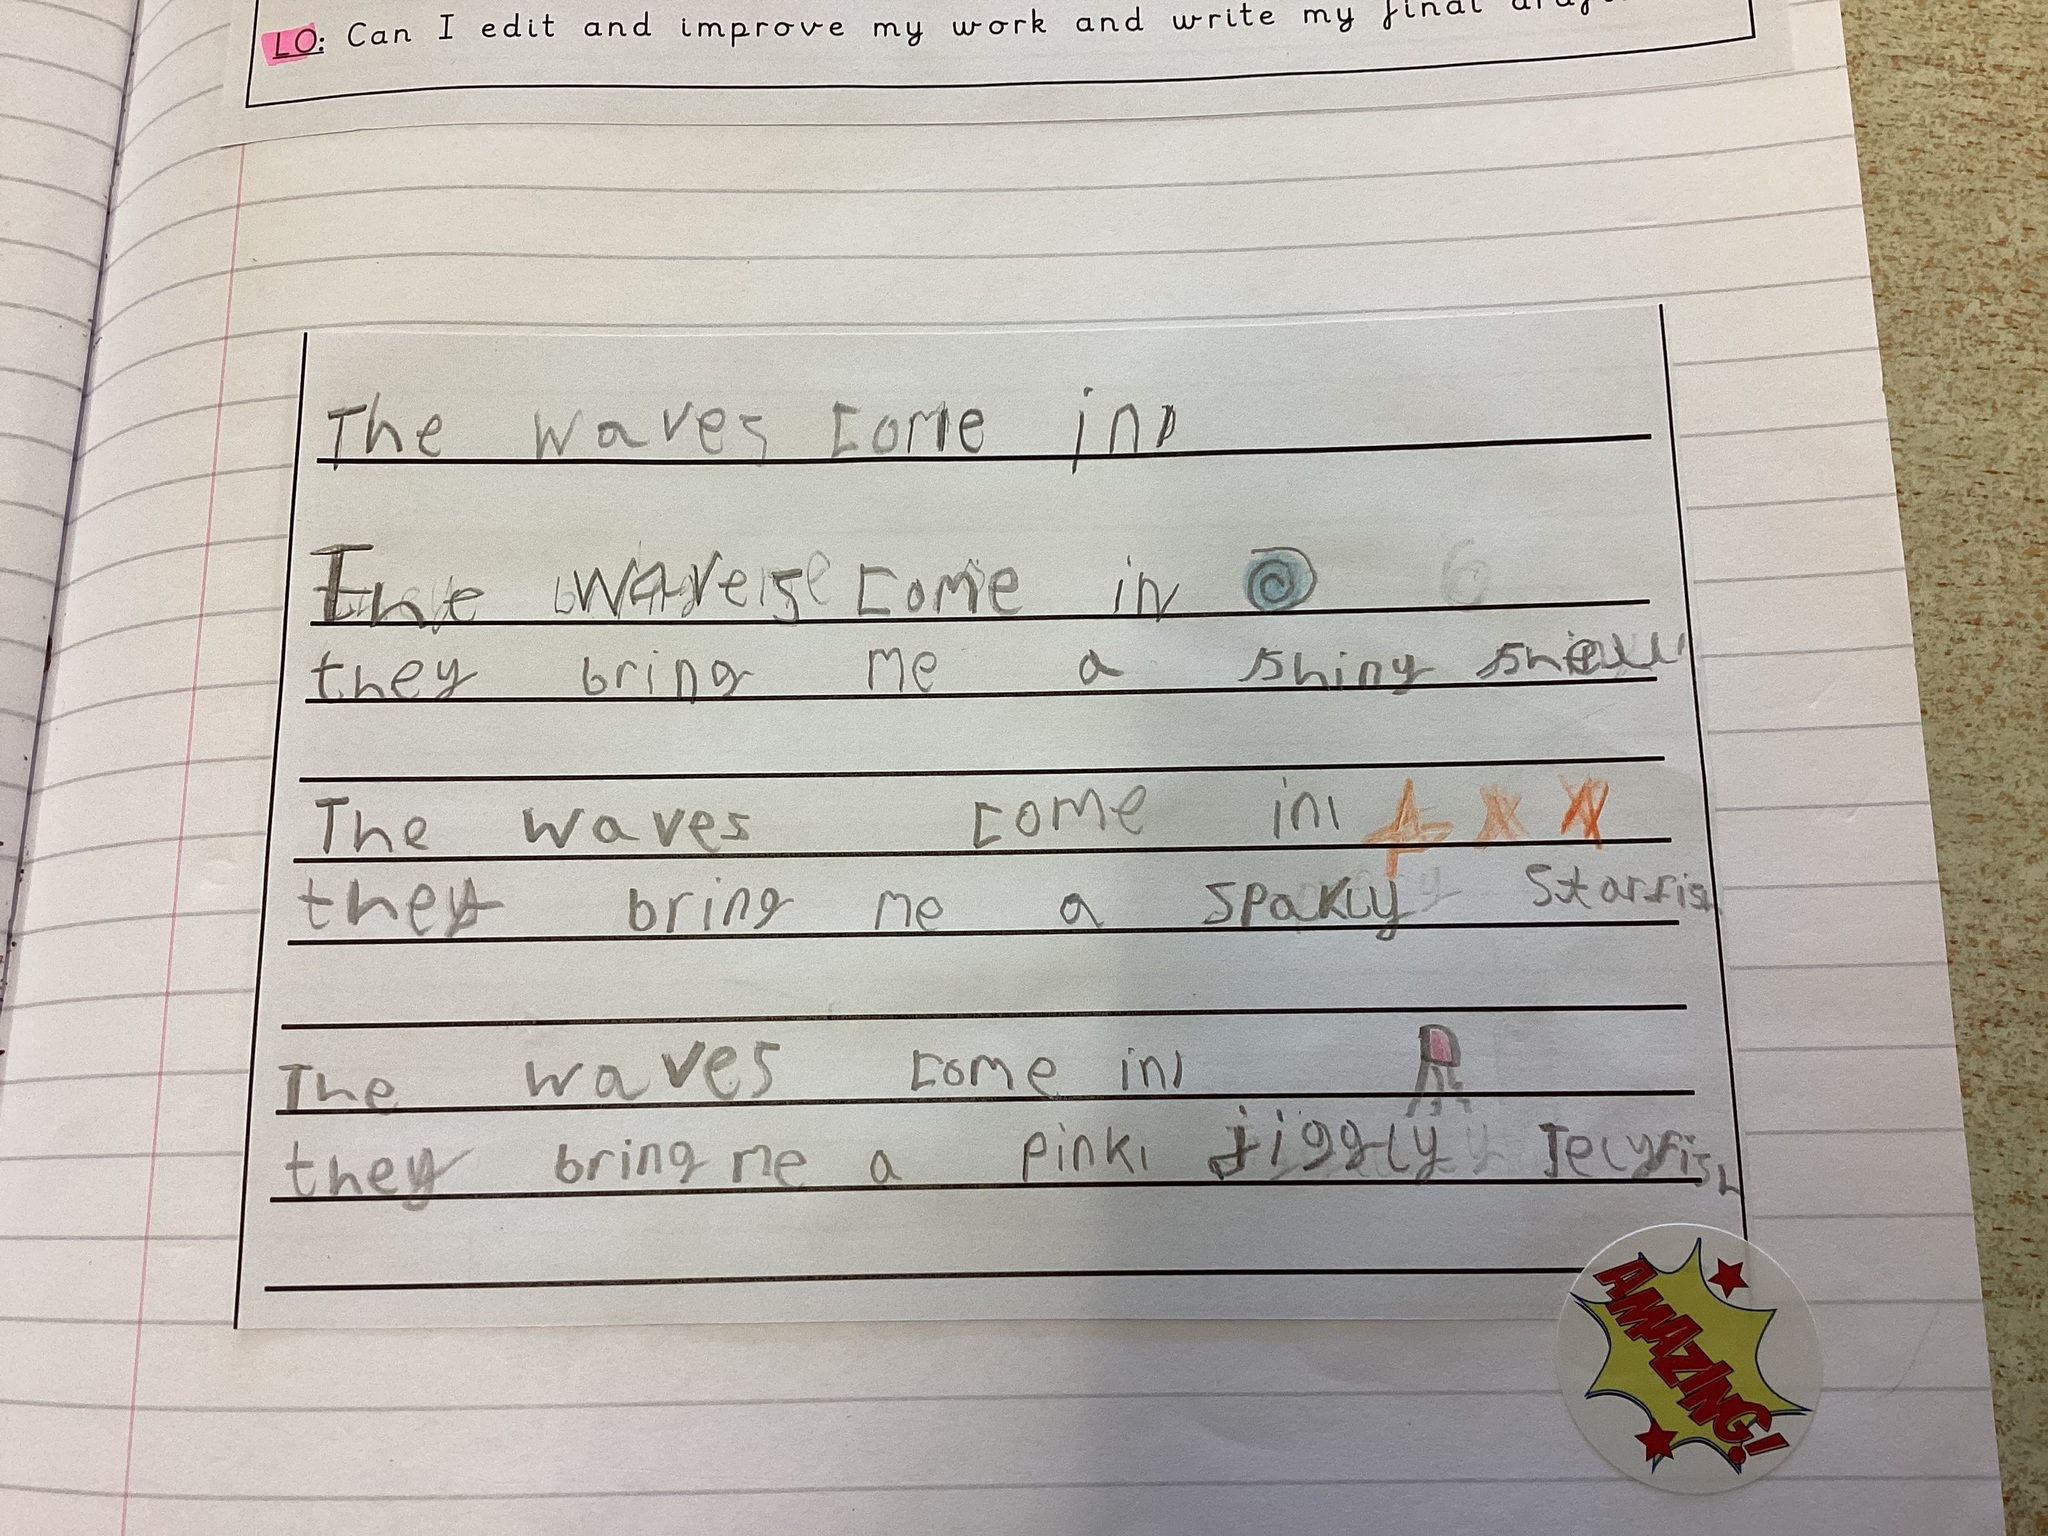 LO: Can I edit and improve my work and write my final draft
The waves come in,
The waves come in
they bring me a shiny shell
The waves come in,
they bring me a spakly starfish
The waves come in,
they bring me a pink, jiggly Jelyfish
AMAZING!